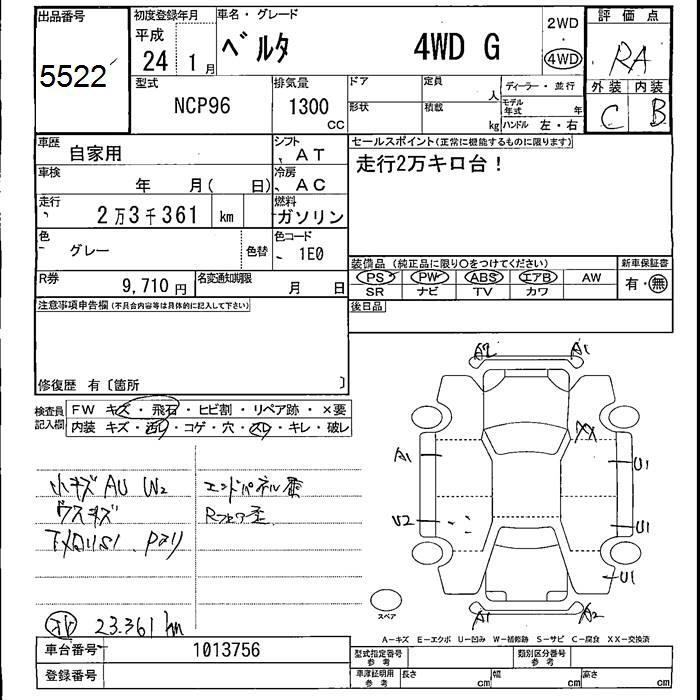 出品番号
5522
初度登録年月
平成
24 1月
車名・グレード
ベルタ 4WD G
2WD
4WD
評価点
RA
外装 内装
C B
型式
NCP96
排気量
1300
CC
ドア
形状
定員
人
積載
kg
ディーラー・並行
モデル年式 年
ハンドル 左・右
車歴
自家用
シフト
AT
車検
年 月( 日)
冷房
AC
走行
2万3千361 km
燃料
ガソリン
色
グレー
色替
色コード
1E0
R券
9,710円
名変通知期限
月 日
セールスポイント(正常に機能するものに限ります)
走行2万キロ台！
装備品(純正品に限り○をつけてください)
PS PW ABS エアB AW
SR ナビ TV カワ
新車保証書
有・無
後日品
注意事項申告欄(不具合内容等は具体的に記入して下さい)
修復歴 有〔箇所 〕
検査員記入欄
FW キズ・飛石・ヒビ割・リペア跡・×要
内装 キズ・汚レ・コゲ・穴・スレ・キレ・破レ
小キズ AU W2
ウスキズ
下メロリS1
エンドパネル歪
Rフロアー歪
23.361km
A2 A1
XX
A1 U1
U2 U1
U1
A1 A2
スペア
A−キズ E−エクボ U−凹み W−補修跡 S−サビ C−腐食 XX−交換済
車台番号
1013756
登録番号
型式指定番号
参考
類別区分番号
参考
車庫証明用
参考
長さ cm
幅 cm
高さ cm